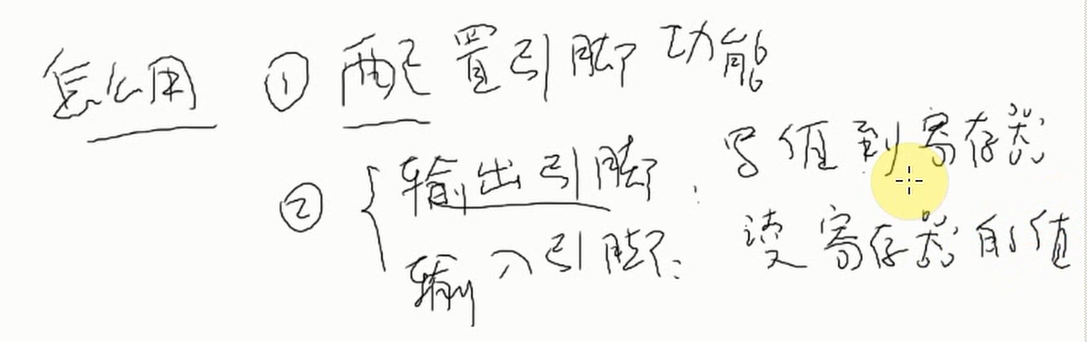 怎么用 ① 配置引脚功能
② { 输出引脚: 写值到寄存器
输入引脚: 读寄存器的值